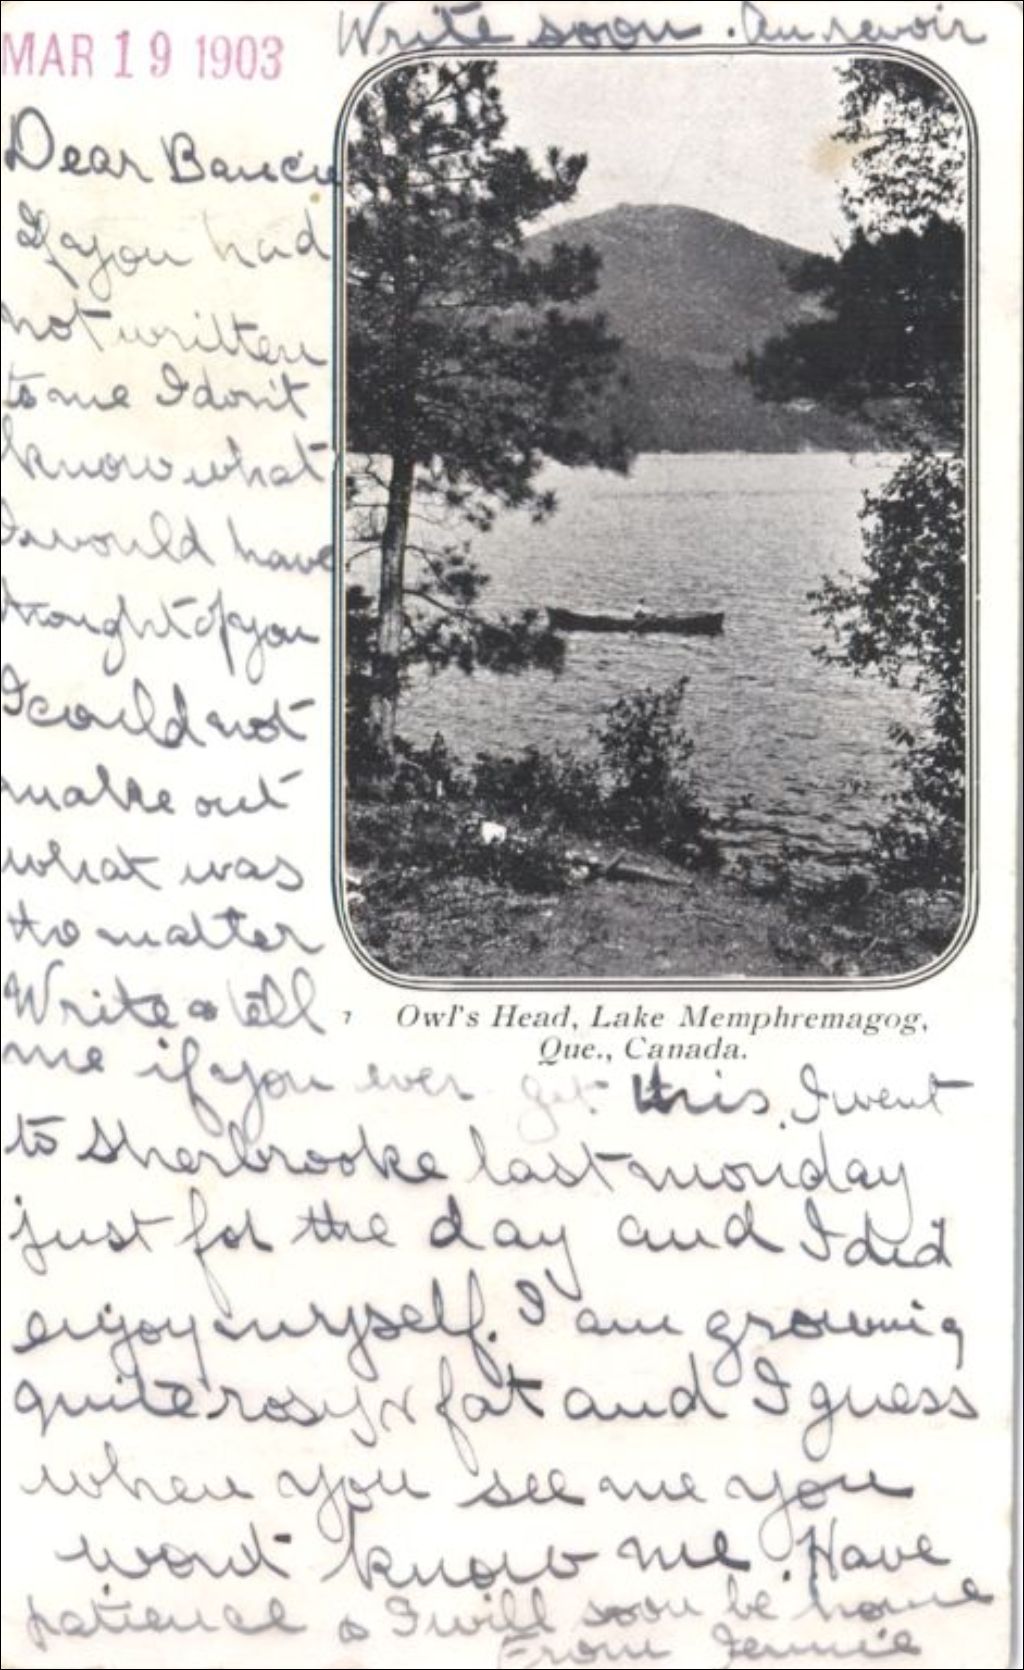 Write soon. Au revoir
MAR 19 1903
Dear
If you had
not written
to me I don't
know what
I would have
thought of you
I could not
make out
what was
the matter
Write & tell
7 Owl's Head, Lake Memphremagog,
Que., Canada.
me if you ever get this. I went
to Sherbrooke last monday
just for the day and I did
enjoy myself. I am growing
quite rosy & fat and I guess
when you see me you
wont know me. Have
patience & I will soon be home
From Jennie